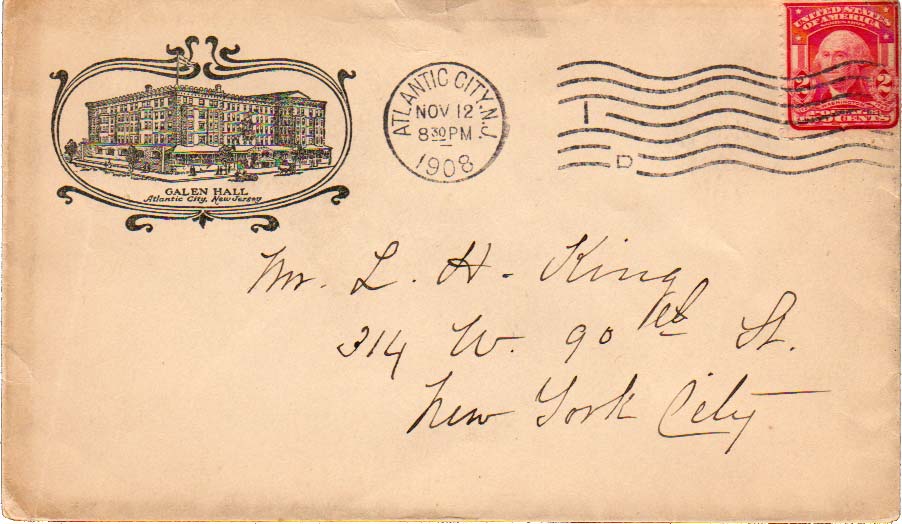 GALEN HALL
Atlantic City, New Jersey
ATLANTIC CITY, N.J.
NOV 12
8 30 PM
1908
1
D
UNITED STATES
OF AMERICA
2 2
CENTS
Mr. L. H. King
314 W. 90th St.
New York City